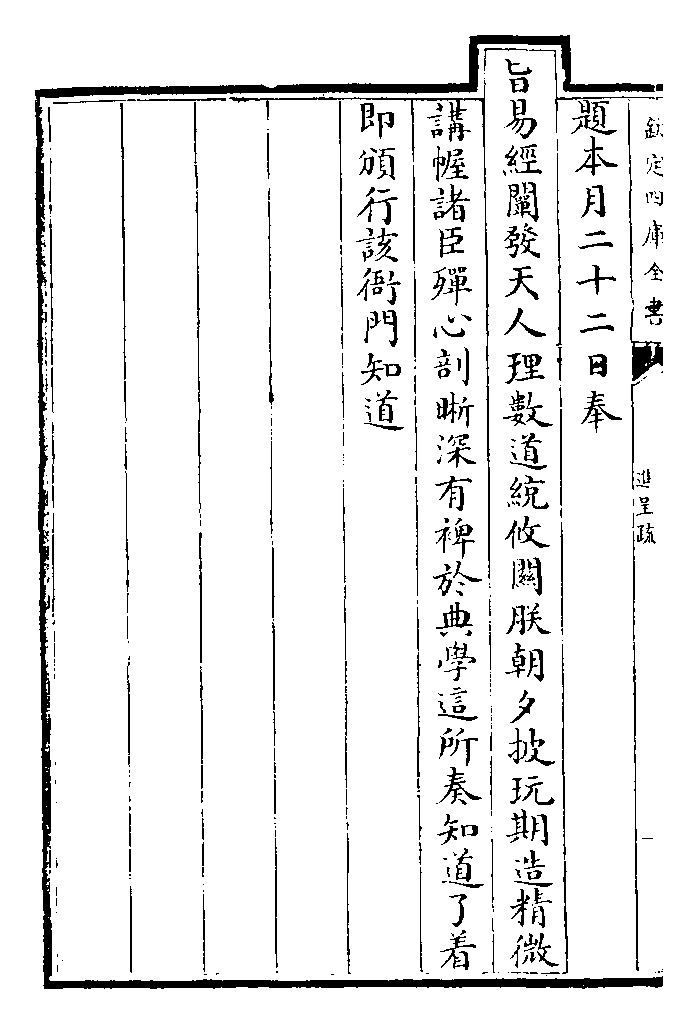 欽定四庫全書
進呈疏
題本月二十二日奉
旨易經闡發天人理數道統攸關朕朝夕披玩期造精微
講幄諸臣殫心剖晰深有裨於典學這所奏知道了着
即頒行該衙門知道